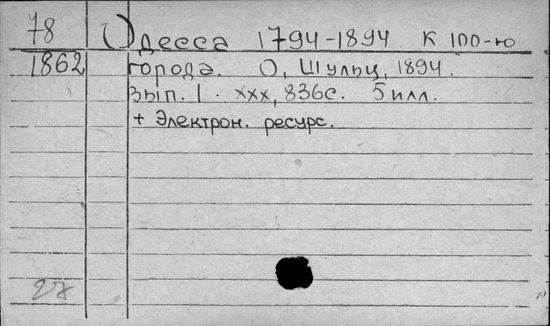 78 Одесса 1794-1894 К 100-ю
1862 города. О, Шульц, 1894.
Вып. 1. xxx, 836с. 5 илл.
+ Электрон. ресурс.